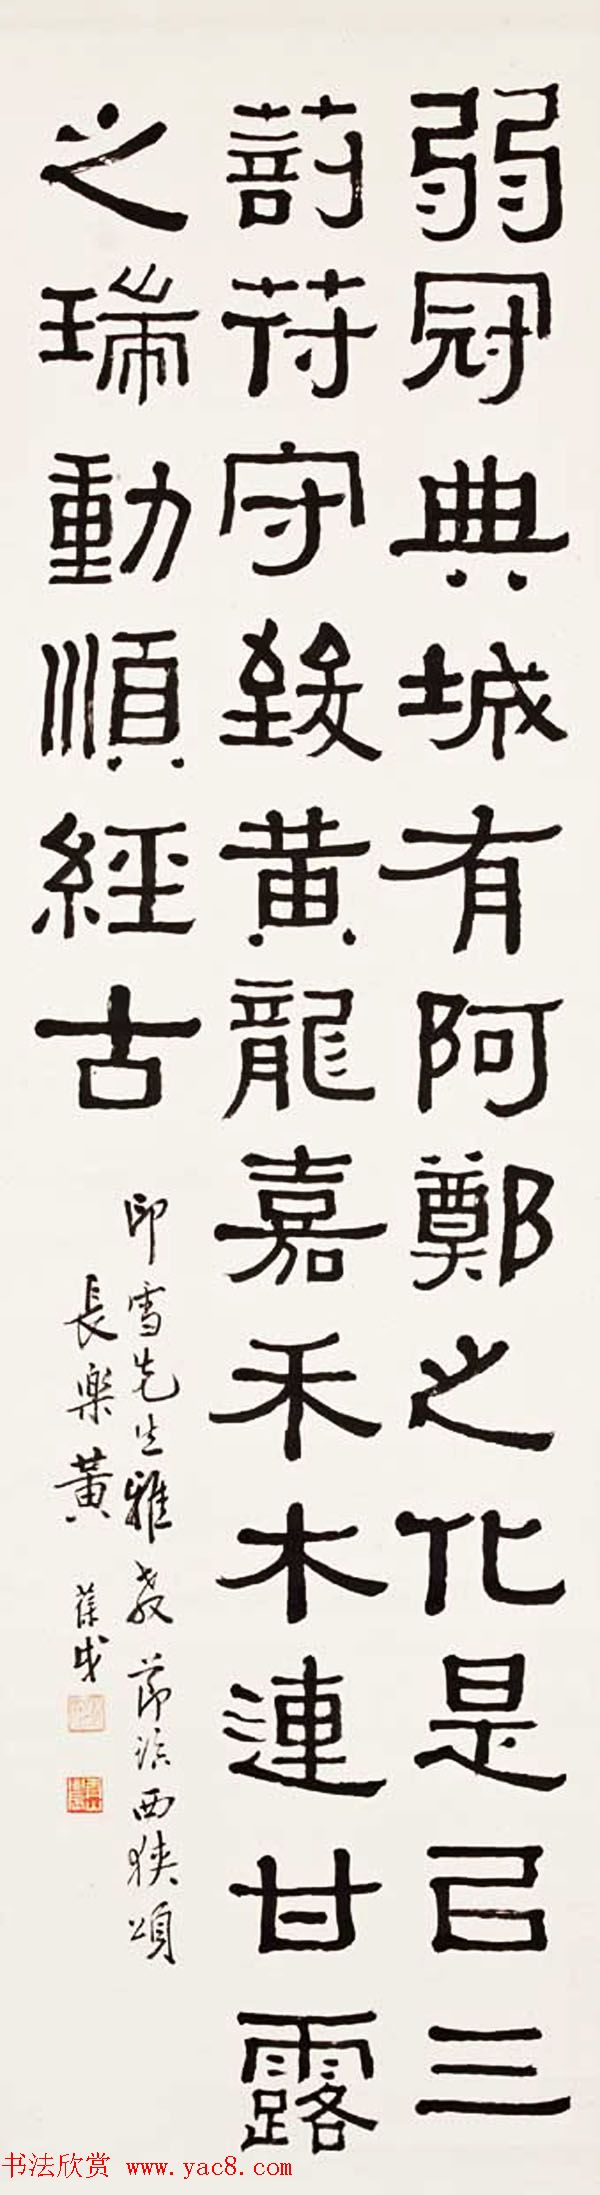 弱冠典城有阿鄭之化是㠯三
剖苻守致黄龍嘉禾木連甘露
之瑞動順經古
印雪先生雅教 節臨西狹頌
長樂黃葆戉
书法欣赏 www.yac8.com